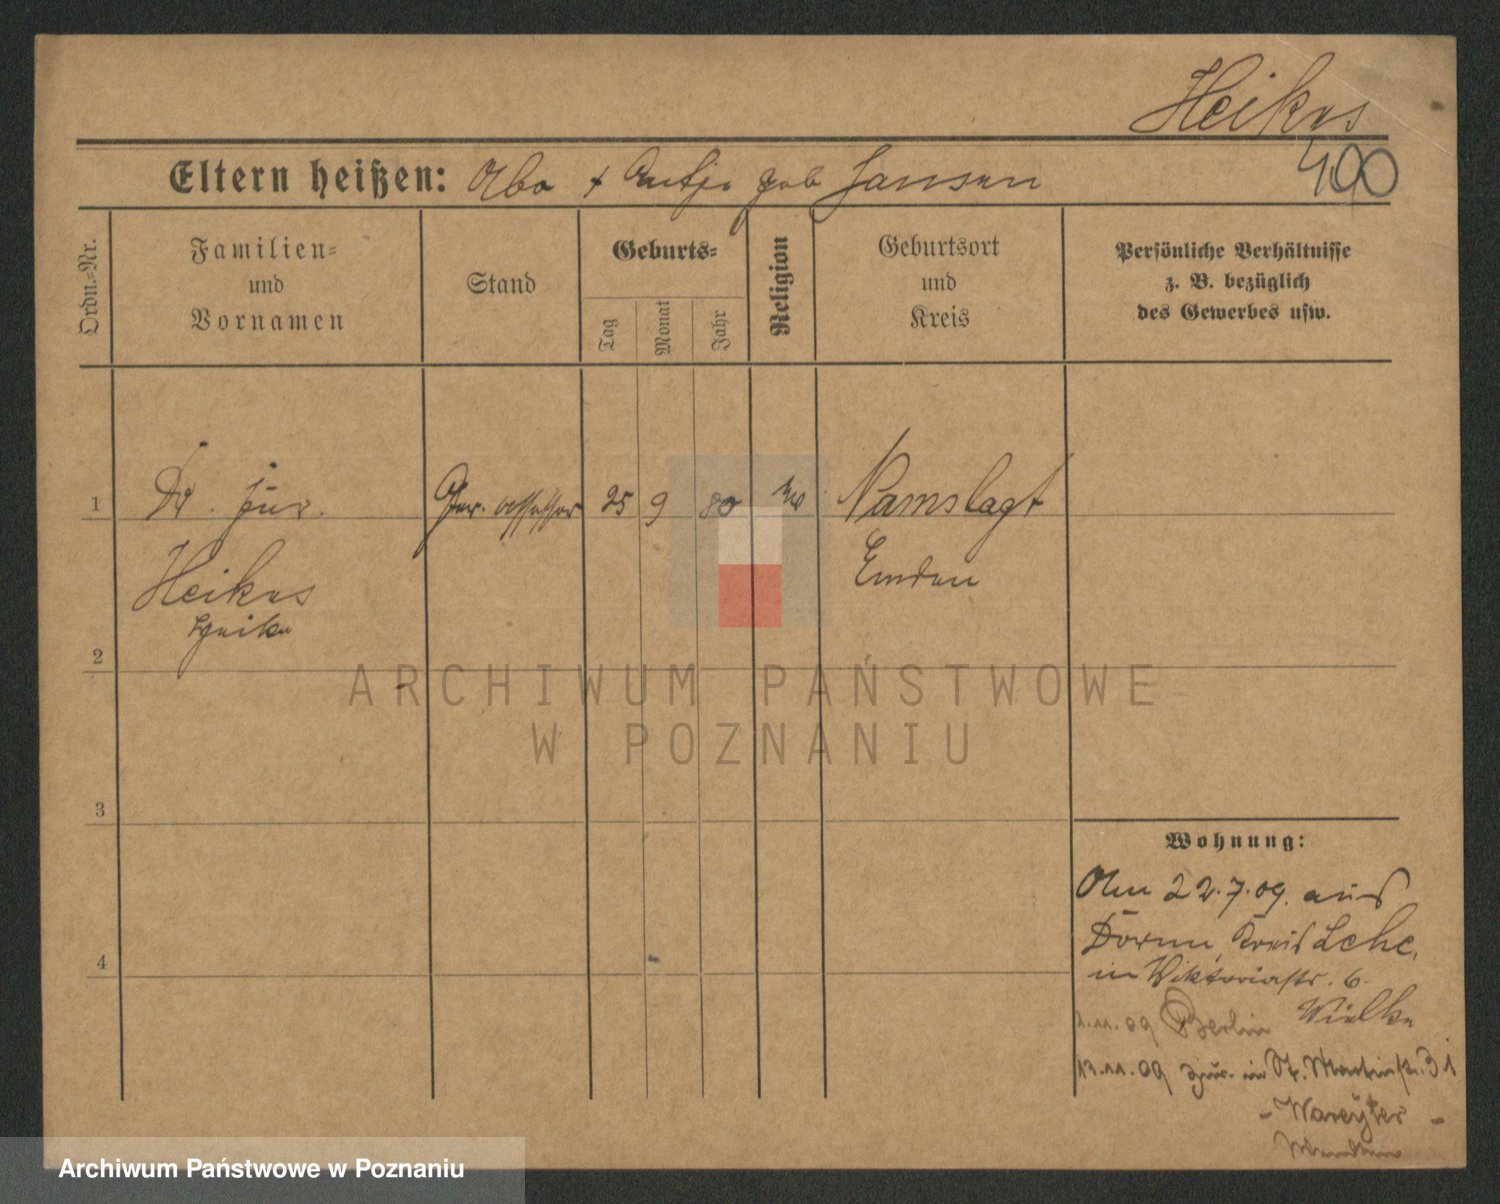 Heikes
490
Eltern heißen: Abo + Antje geb Jansen
Ordn.-Nr.
Familien-
und
Vornamen
Stand
Geburts-
Tag
Monat
Jahr
Religion
Geburtsort
und
Kreis
Persönliche Verhältnisse
z. B. bezüglich
des Gewerbes usw.
1
Dr. jur.
Ger. Assessor
25
9
80
ev
Wamslagt
Heikes
Emden
2
ARCHIWUM PAŃSTWOWE
W POZNANIU
3
Wohnung:
Am 22.7.09. aus
Dorum, Kreis Lehe,
in Viktoriastr. 6.
1.11.09 Berlin
13.11.09 zur. in St. Martinstr. 31
4
Archiwum Państwowe w Poznaniu